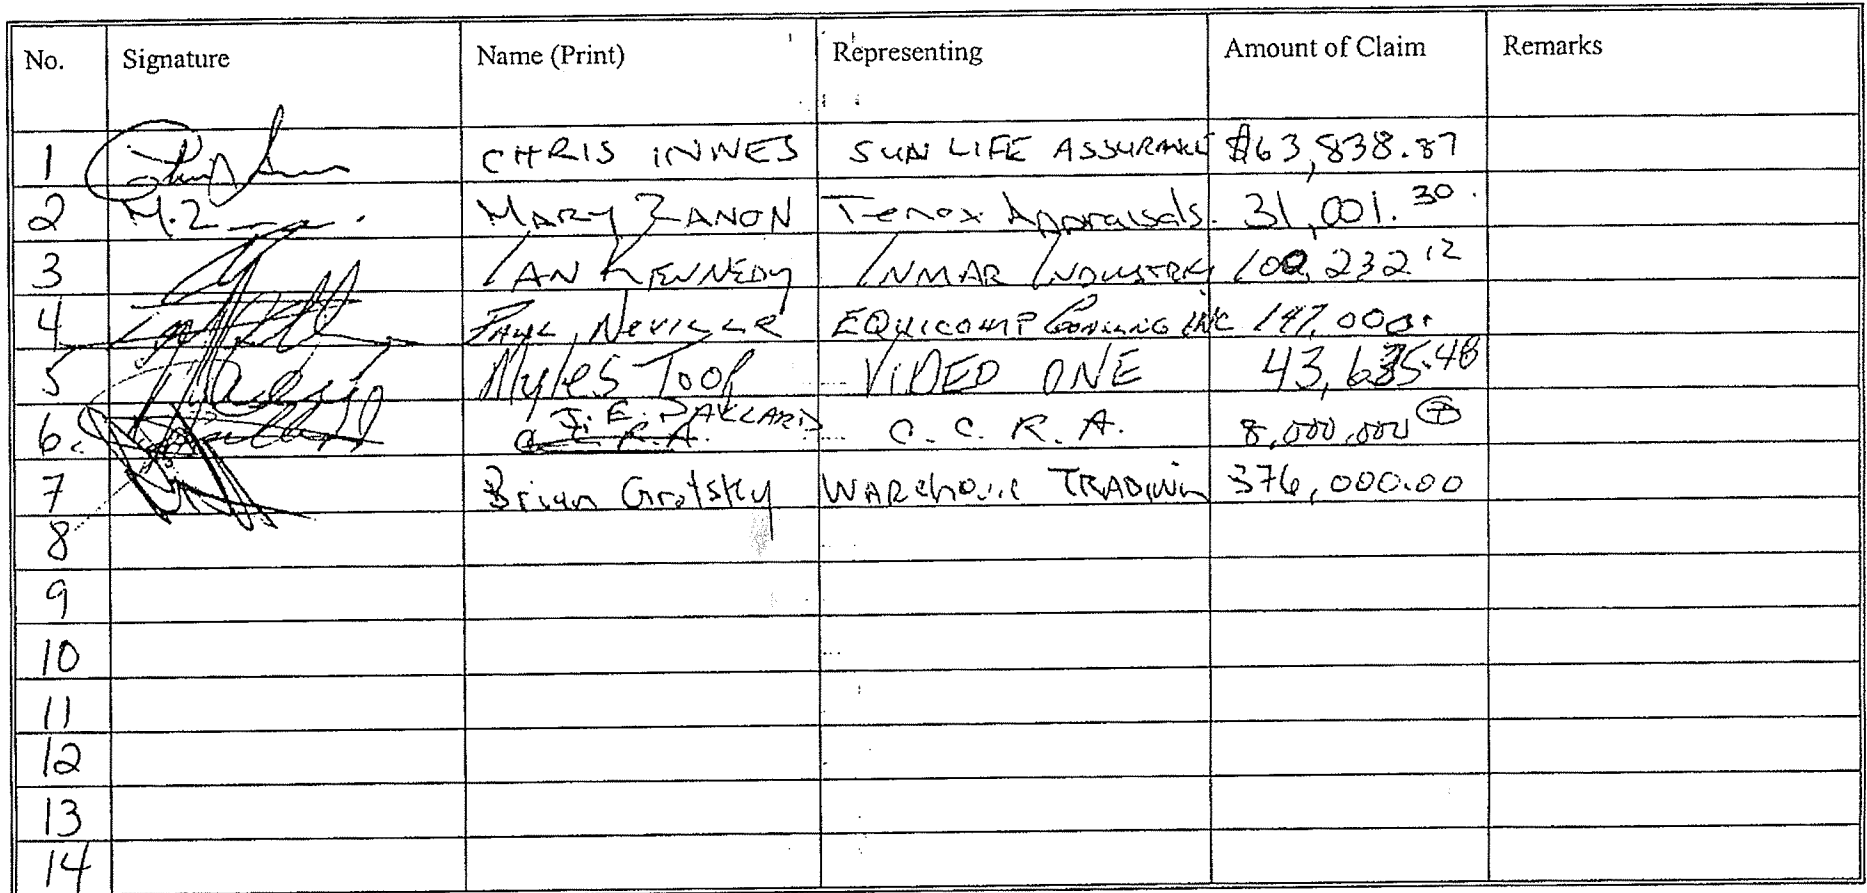 No. Signature Name (Print) Representing Amount of Claim Remarks
1 CHRIS INNES SUN LIFE ASSURANCE $63,838.87
2 M.Z MARY ZANON Tenox Appraisals. 31,001.30
3 IAN KENNEDY INMAR INDUSTRY 100,232 12
4 PAUL NEVILLE EQUICOMP INC 147,000.
5 Myles Toop VIDEO ONE 43,635.48
6. J. E. PALLARD C.C.R.A. C. C. R. A. 8,000,000
7 Brian Grotsky WAREhouse TRADING 376,000.00
8
9
10
11
12
13
14